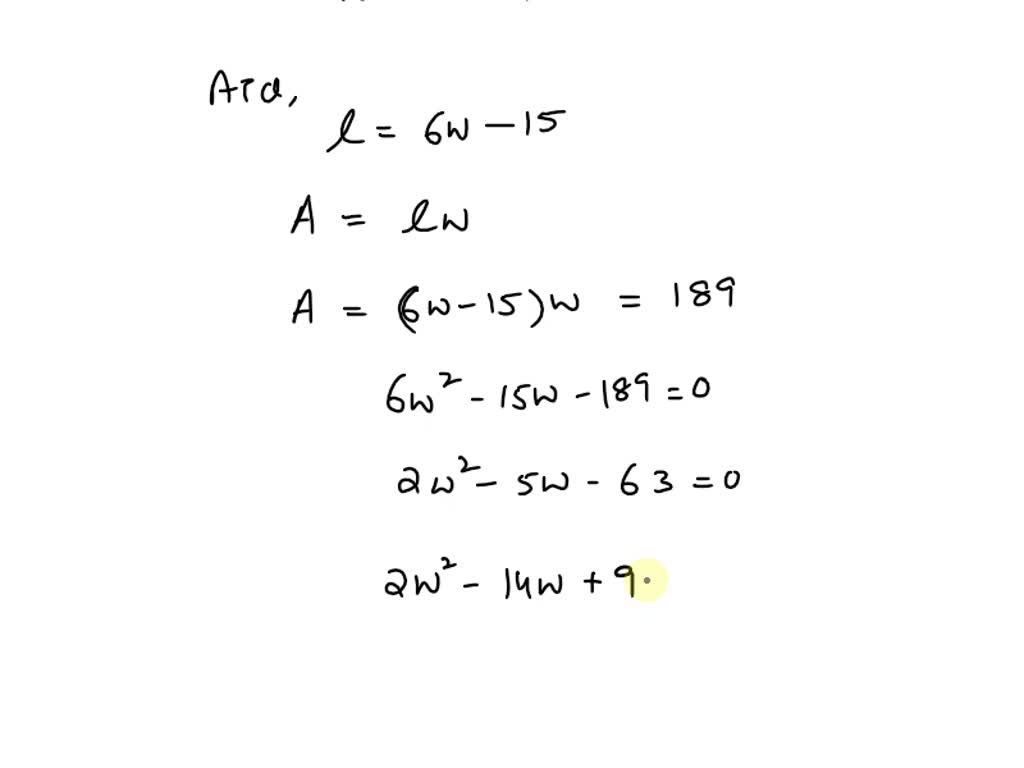 ATQ,
l = 6w - 15
A = lw
A = (6w - 15)w = 189
6w² - 15w - 189 = 0
2w² - 5w - 63 = 0
2w² - 14w + 9